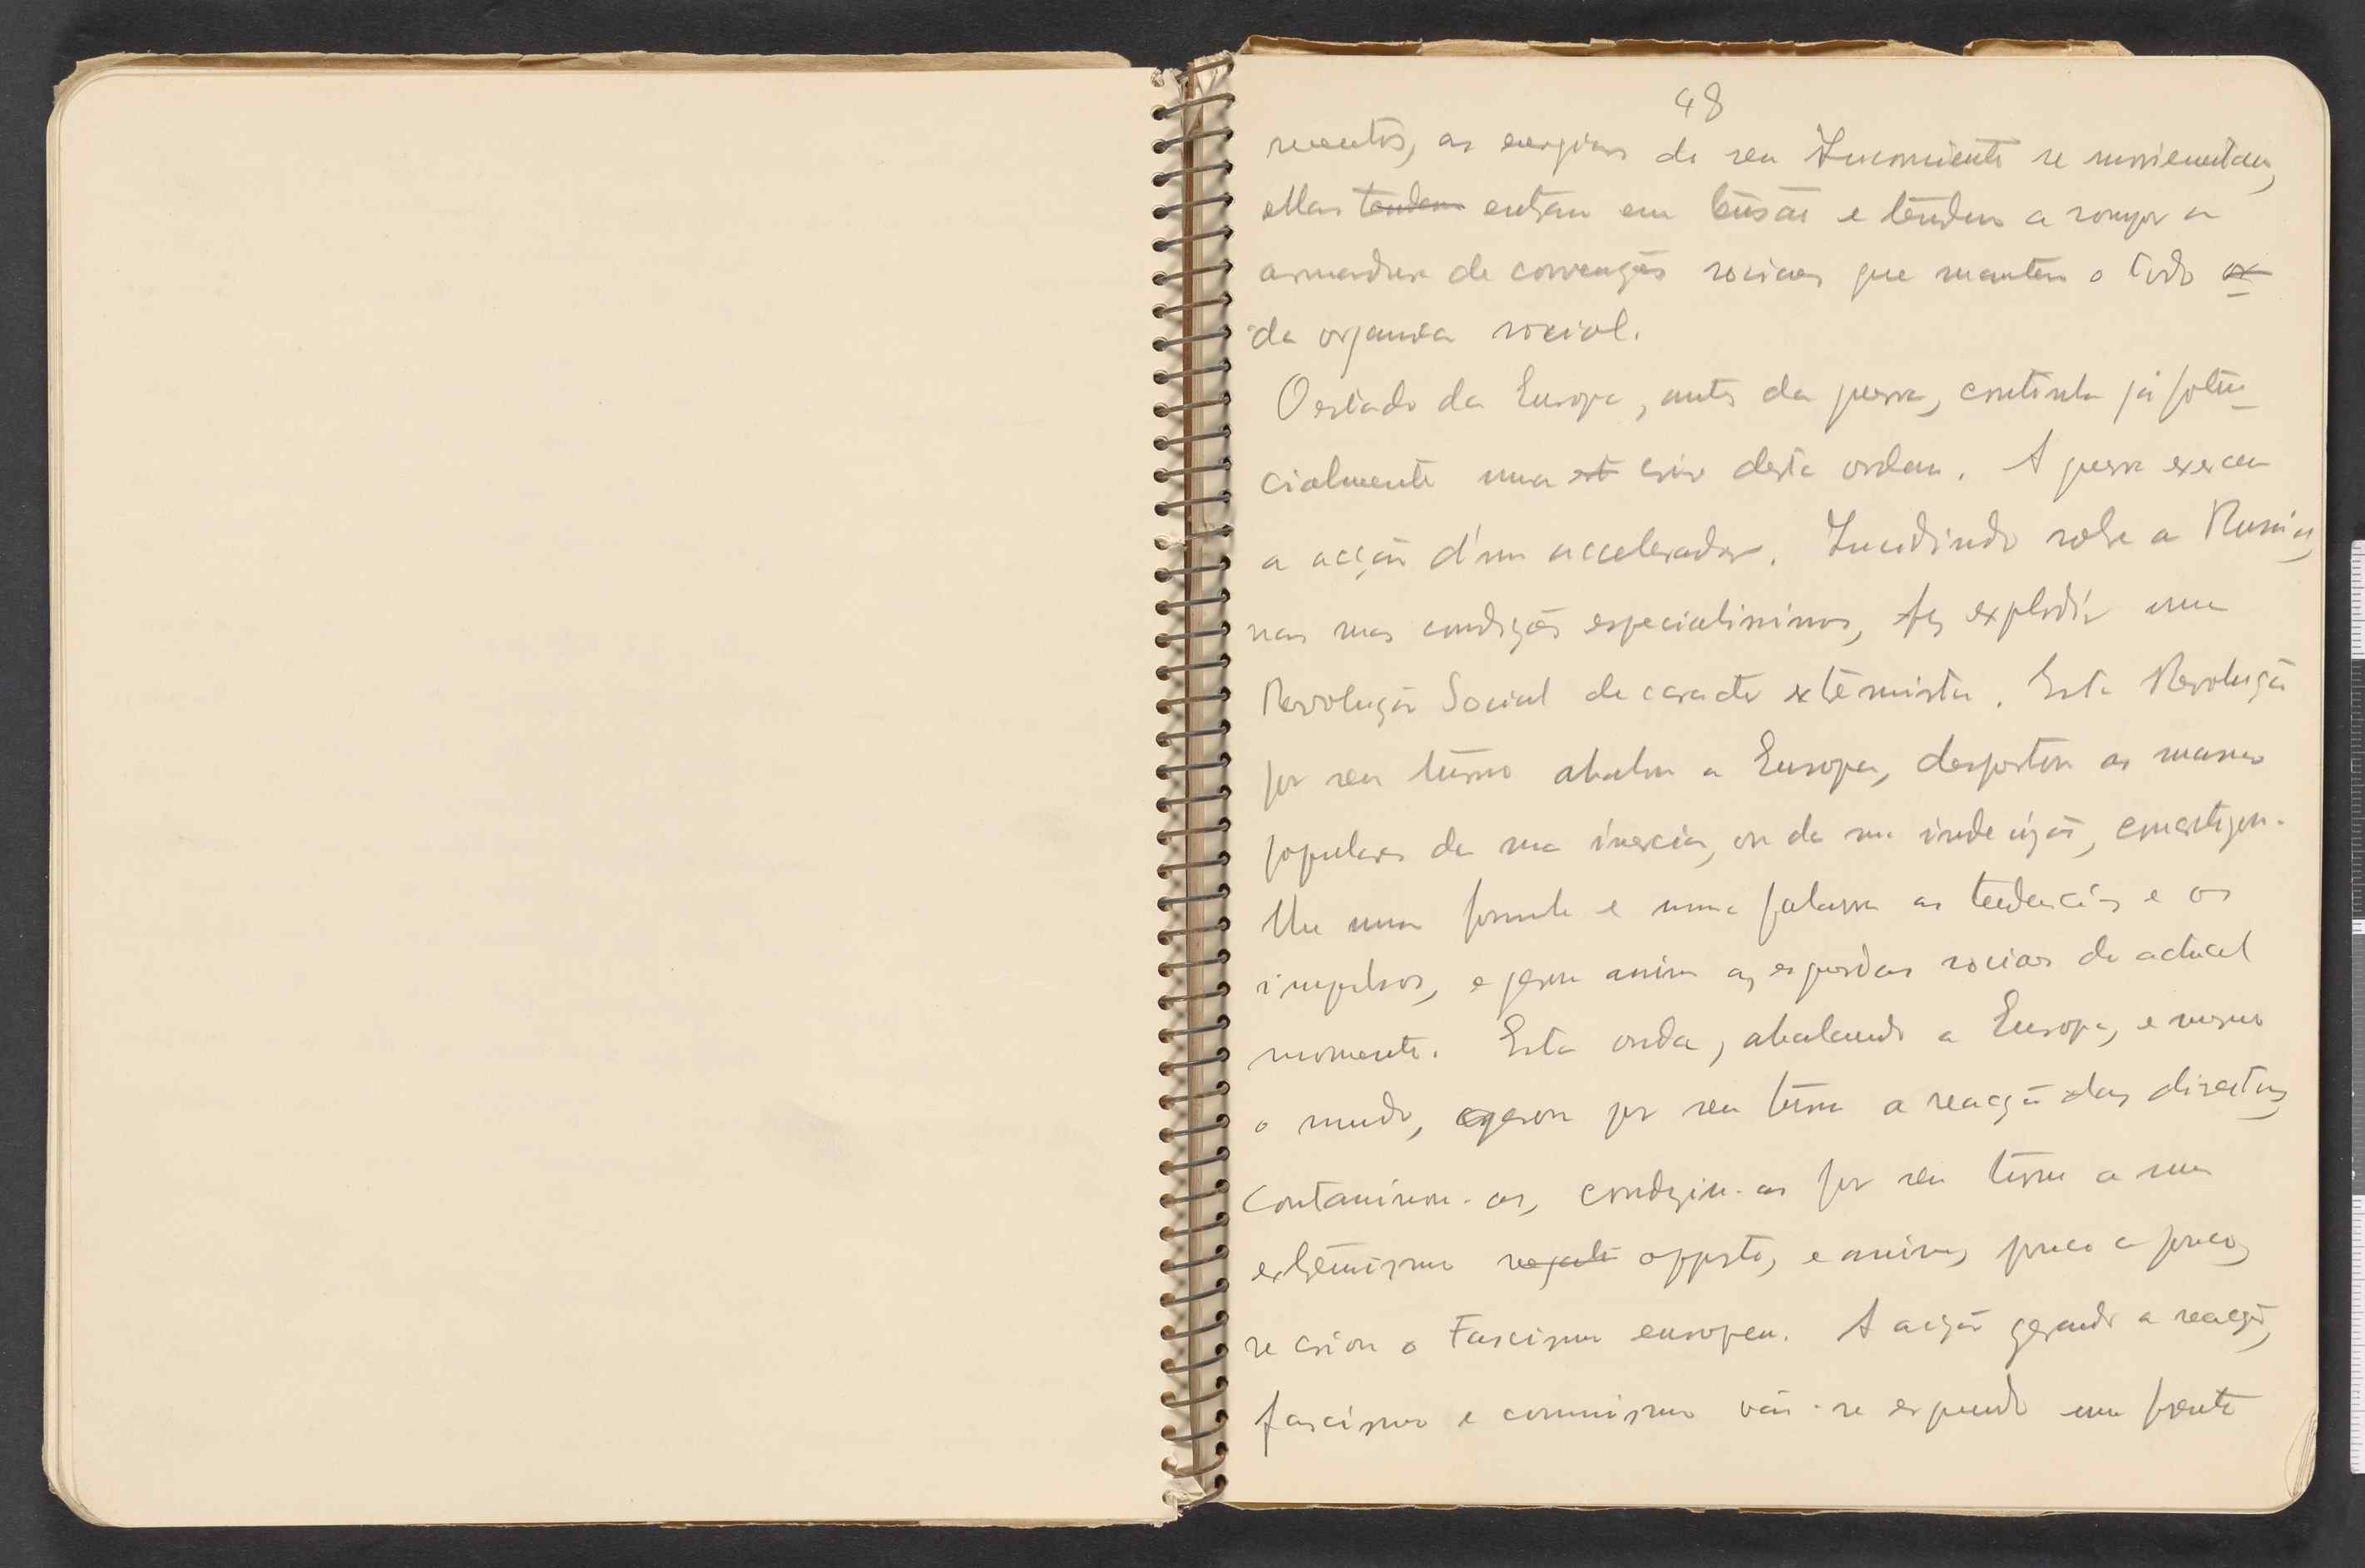 48
mentos, as energias do seu Inconsciente se movimentam,
ellas tendem entram em tensão e tendem a romper a
armadura de convenções sociaes que mantem o todo
da social.
O estado da Europa, antes da guerra, continha já poten-
cialmente uma est crise desta ordem. A guerra exerceu
a acção d'um accelerador. Incidindo sobre a Russia,
nas suas condições especialissimas, fez explodir uma
Revolução Social de caracter extremista. Esta Revolução
por seu turno abalou a Europa, despertou as massas
populares da sua inercia, ou da sua indecisão,
lhe numa formula e numa palavra as tendencias e os
impulsos, e gerou assim as esquerdas sociaes do actual
momento. Esta onda, abalando a Europa, e mesmo
o mundo, gerou por seu turno a reacção das direitas,
contaminou-as, conduziu-as por seu turno a um
extremismo opposto, e assim, pouco a pouco,
se criou o Fascismo europeu. A acção gerando a reacção,
fascismo e communismo vão-se erguendo em frente